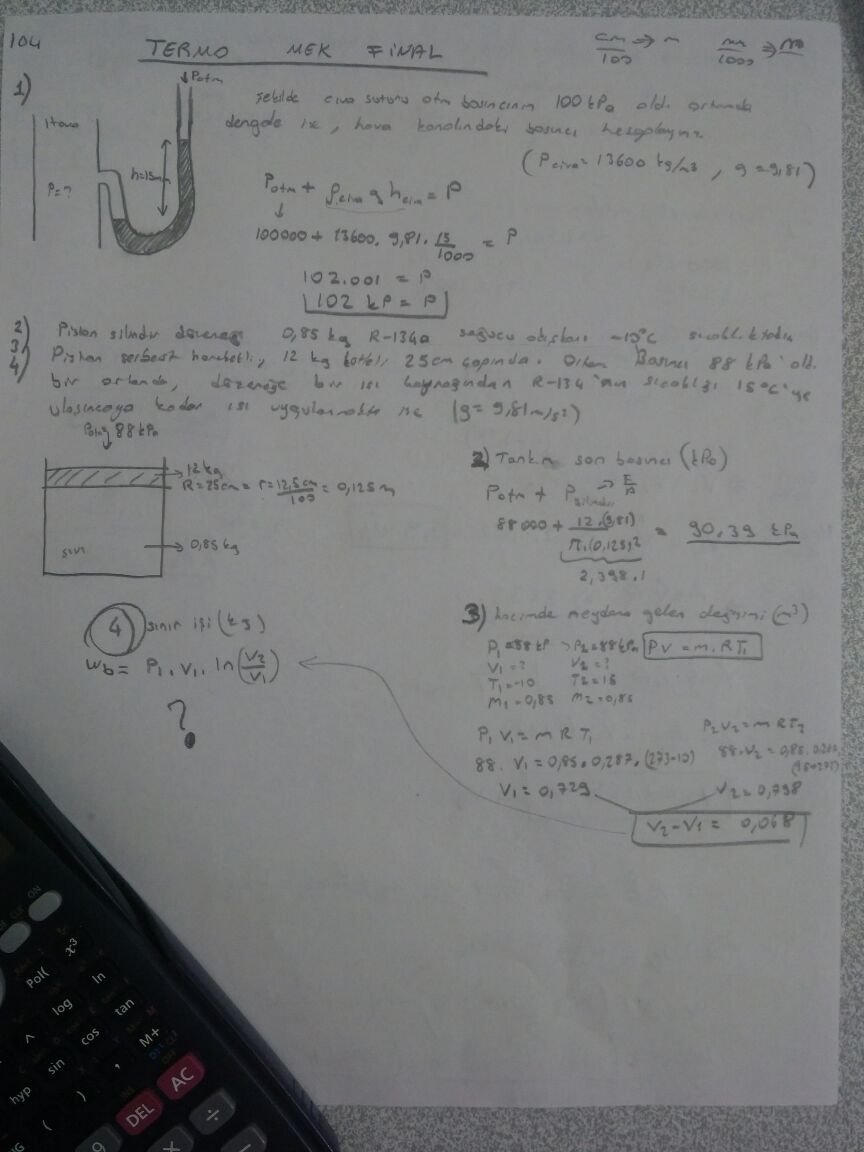 104
TERMO MEK FİNAL
cm/100 → m  m/1000 ⇒ m
1)
↓Patm
Hava
P=?
h=15m
Şekilde civa sutunu atm basıncının 100 kPa old. ortamda
dengde ise, hava kanalındaki basıncı hesaplayınız
(Pciva = 13600 kg/m3, g = 9,81)
Patm + ρciva g hciva = P
↓
100000 + 13600. 9,81. 15/1000 = P
102.001 = P
102 kP = P
2) Piston silindir düzeneği 0,85 kg R-134a soğucu akışkanı -10°C sıcaklıktadır
3) Piston serbest hareketli, 12 kg kütleli, 25cm çapında. Ortam Basıncı 88 kPa old.
4) bir ortamda, düzeneğe bir ısı kaynağından R-134'ün sıcaklığı 15°C'ye
ulaşıncaya kadar ısı uygulanmakta ise (g = 9,81m/s²)
Patm 88 kPa
→12 kg
R=25cm = r=12,5cm/100 = 0,125m
→ 0,85 kg
2) Tankın son basıncı (kPa)
Patm + Psilindir → F/A
88000 + 12.(9,81)/π.(0,125)2 = 90,39 kPa
2,398.1
4 sınır işi (kJ)
Wb = P1. V1. ln(V2/V1)
?
3) hacimde meydana gelen değişimi (m³)
P1=88 kP → P2=88kPa PV = m.RT1
V1=? V2=?
T1=-10 T2=15
m1=0,85 m2=0,85
P1 V1 = m R T1
88. V1 = 0,85. 0,287. (273-10)
V1 = 0,729
P2V2 = m RT2
88.V2 = 0,85. 0,287.
(15+273)
V2=0,798
V2-V1 = 0,068
ON
Pol(
x³
^
log
ln
hyp
sin
cos
tan
(
)
,
M+
DEL
AC
9
×
÷